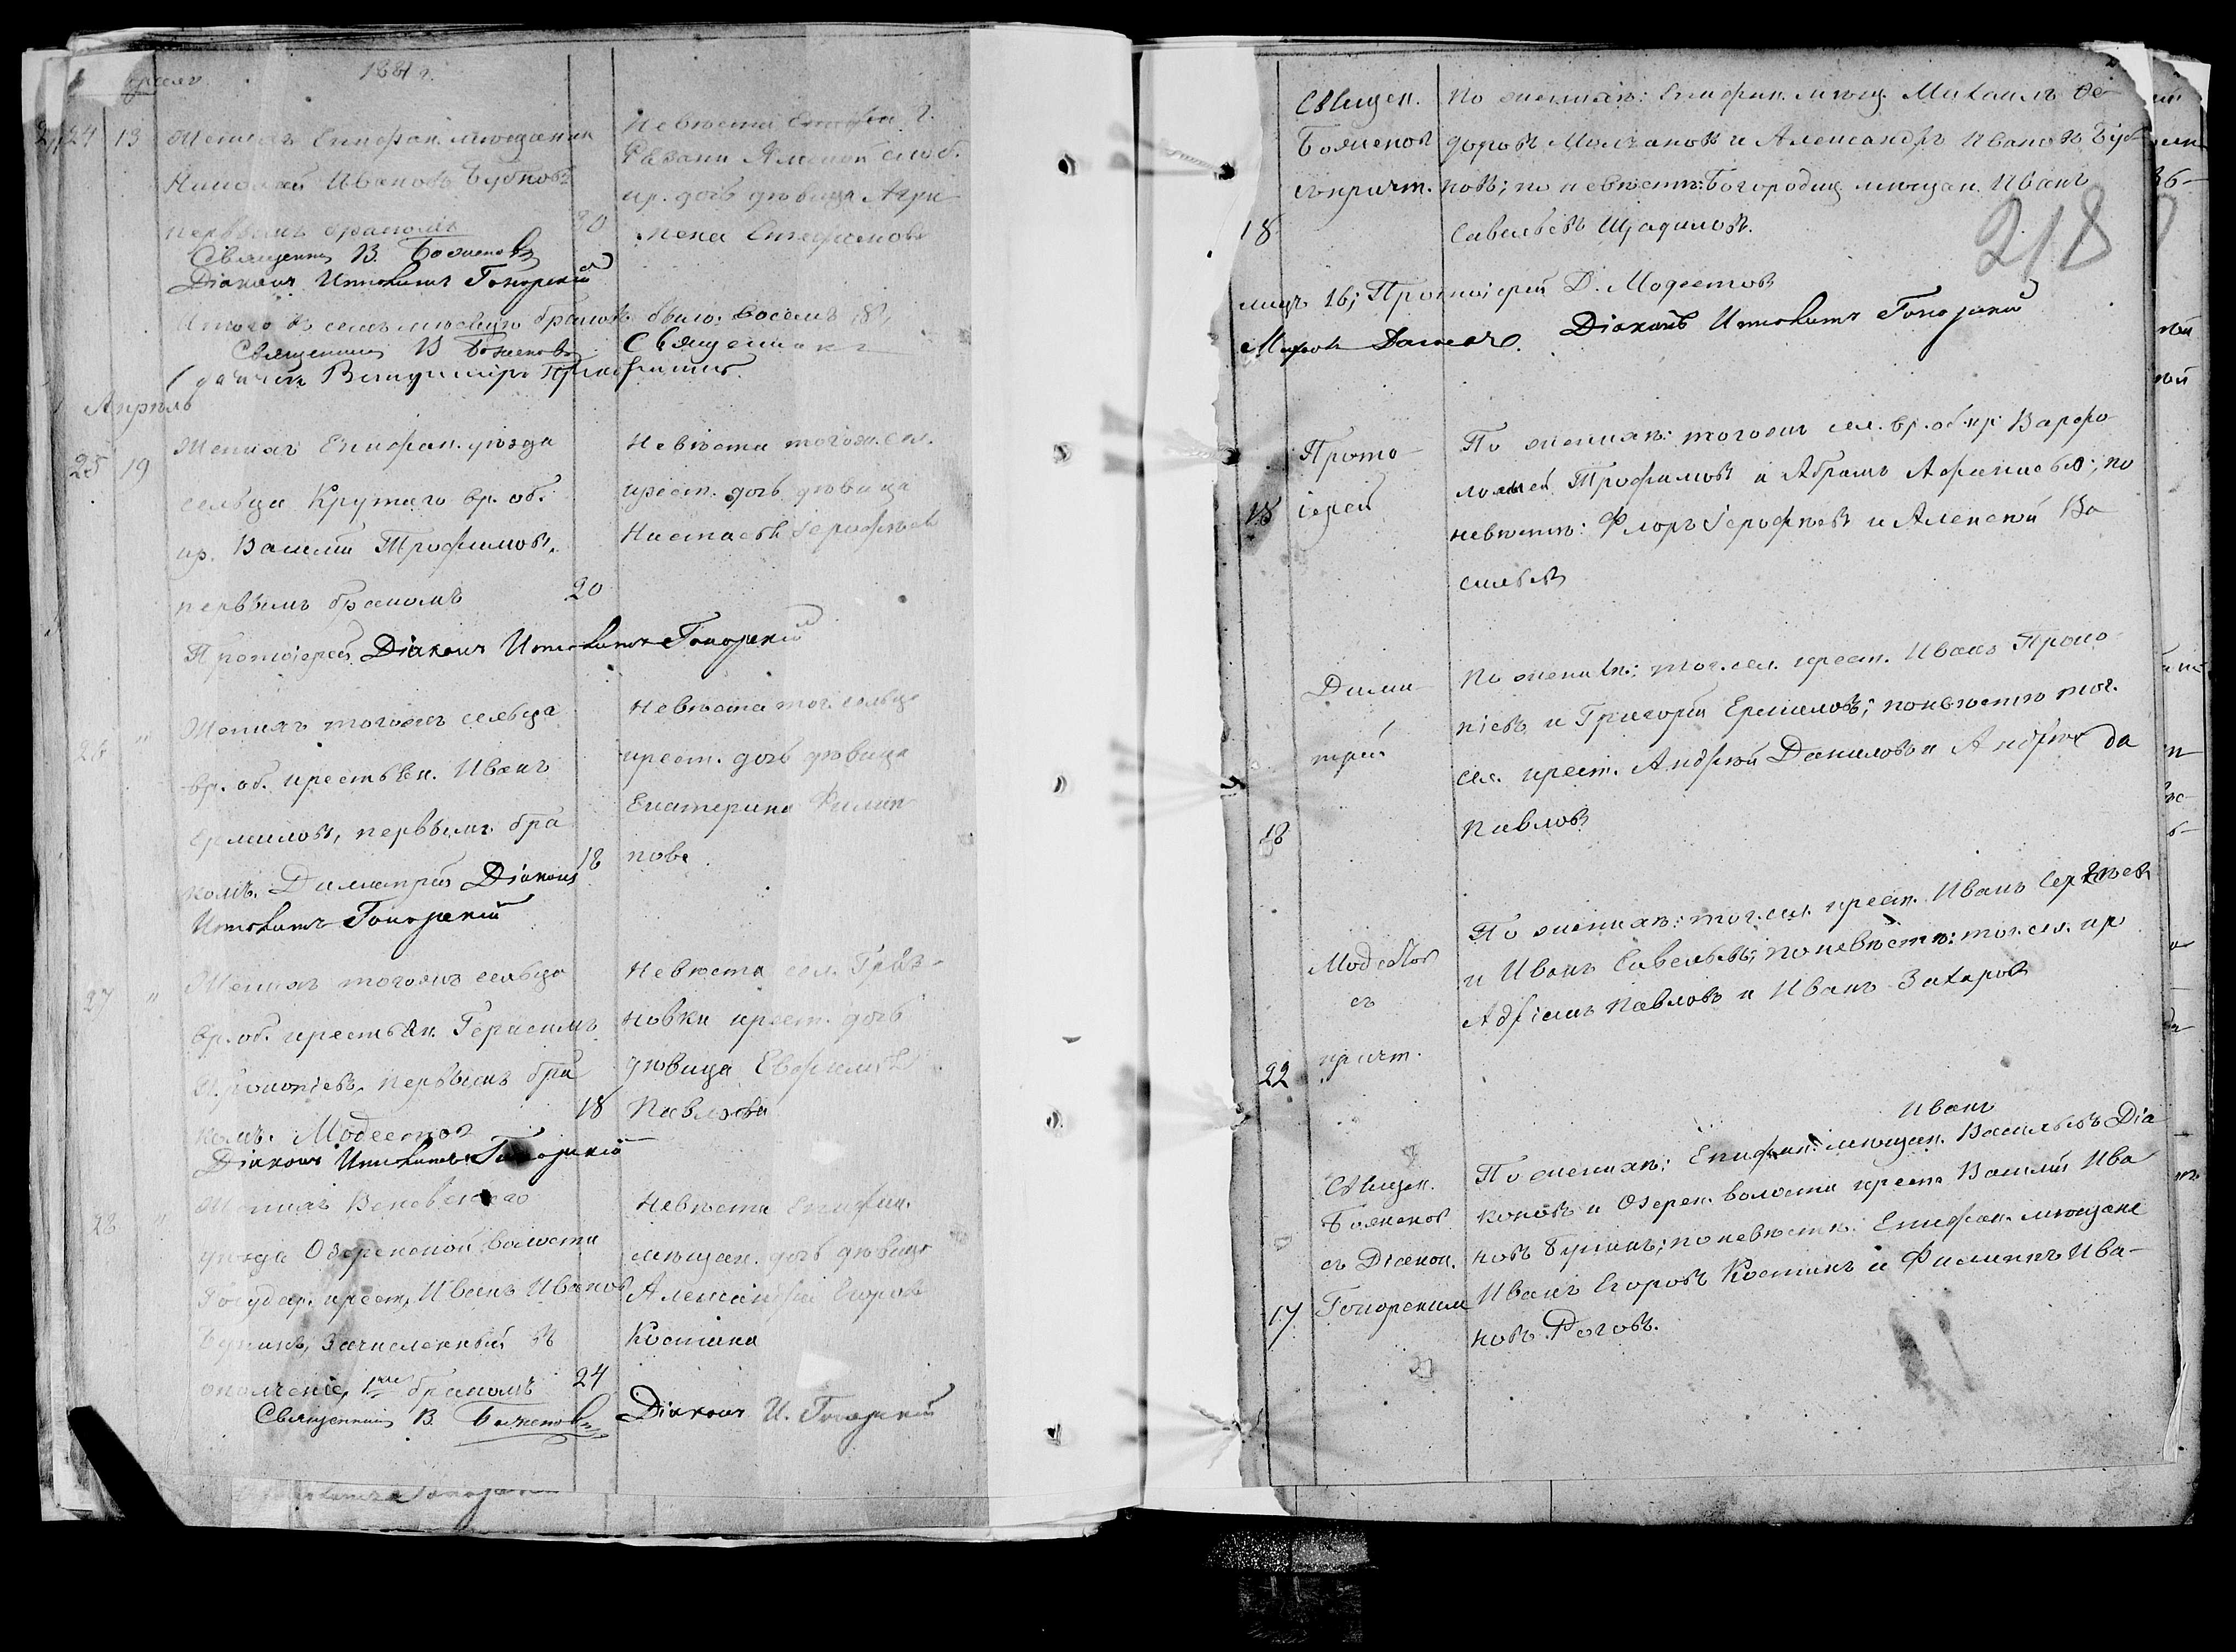 1881 г.
24 13 Женихъ Епифан. мѣщанин
Николай Ивановъ Бубновъ
первымъ бракомъ 20
Священник В. Боженовъ
Діаконъ Ипполитъ Гонорскій
Невѣста
Рязани Ямской слоб.
кр. дочь дѣвица Агри
пена Стефанова
Итого въ семъ мѣсяцѣ браковъ было восемь 8.
Священник В Боженовъ
Священника
Апрѣль
25 19 Женихъ Епифан. уѣзда
сельца Крутаго вр. об.
кр. Василій Трофимовъ,
первымъ бракомъ 20
Невѣста тогож. сел.
крест. дочь дѣвица
Настасья Іерофѣев
Протоіерей Діаконъ Ипполитъ Гонорскій
26 " Женихъ тогожъ сельца
вр. об. крестьян. Иванъ
Ермиловъ, первымъ бра
комъ. Димитрій Діаконъ 18
Ипполитъ Гонорскій
Невѣста тог. сельца
крест. дочь дѣвица
Екатерина Филип
пова
27 " Женихъ тогожъ сельца
вр. об. крестьян. Герасимъ
Прокопіевъ, первымъ бра
комъ. Модестов 18
Діаконъ Ипполитъ Гонорскій
Невѣста сел.
новки крест. дочь
дѣвица Евфимія
Павлова
28 " Женихъ Веневскаго
уѣзда Озеренской волости
Государ. крест. Иванъ Иванов
зачисленный въ
ополченіе, 1мъ бракомъ 24
Священникъ В. Боженовъ
Невѣста Епифан.
мѣщан. дочь дѣвица
Александра Егорова
Костина
Діаконъ И. Гонорскій
218
Священ.
Боженов
съ причт.
18
По женихѣ: Епифан. мѣщ. Михаилъ Ѳе-
доровъ Молчановъ и Александръ Ивановъ Буб
новъ; по невѣстѣ: Богородиц. мѣщан. Иванъ
Савельевъ Щадиловъ.
16; Протоіерей Д. Модестовъ
Діаконъ Ипполитъ Гонорскій
Прото-
іерей
18
По женихѣ: тогожъ сел. вр. об. кр. Варфо
ломей Трофимовъ и Абрамъ Афанасьев; по
невѣстѣ: Флоръ Іерофѣевъ и Алексѣй Ва
сильевъ
Дими-
трій
18
По жених.: тог. сел. крест. Иванъ Проко
піевъ и Григорій Ермиловъ; по невѣстѣ тог.
сел. крест. Андрей Даниловъ и Андрей да
Павловъ
Модестов
съ
причт.
22
По женихѣ: тог. сел. крест. Иванъ Сергѣевъ
и Иванъ Савельевъ; по невѣстѣ: тог. сел. кр
Адріанъ Павловъ и Иванъ Захаровъ
Священ.
Боженов
съ Діакон.
Гонорским
17
Иванъ
По женихѣ: Епифан. мѣщан. Васильевъ Діа
коновъ и Озерен. волости крест. Василій Ива
новъ Бурцевъ; по невѣстѣ: Епифан. мѣщане
Иванъ Егоровъ Костинъ и Филиппъ Ива-
новъ Роговъ.